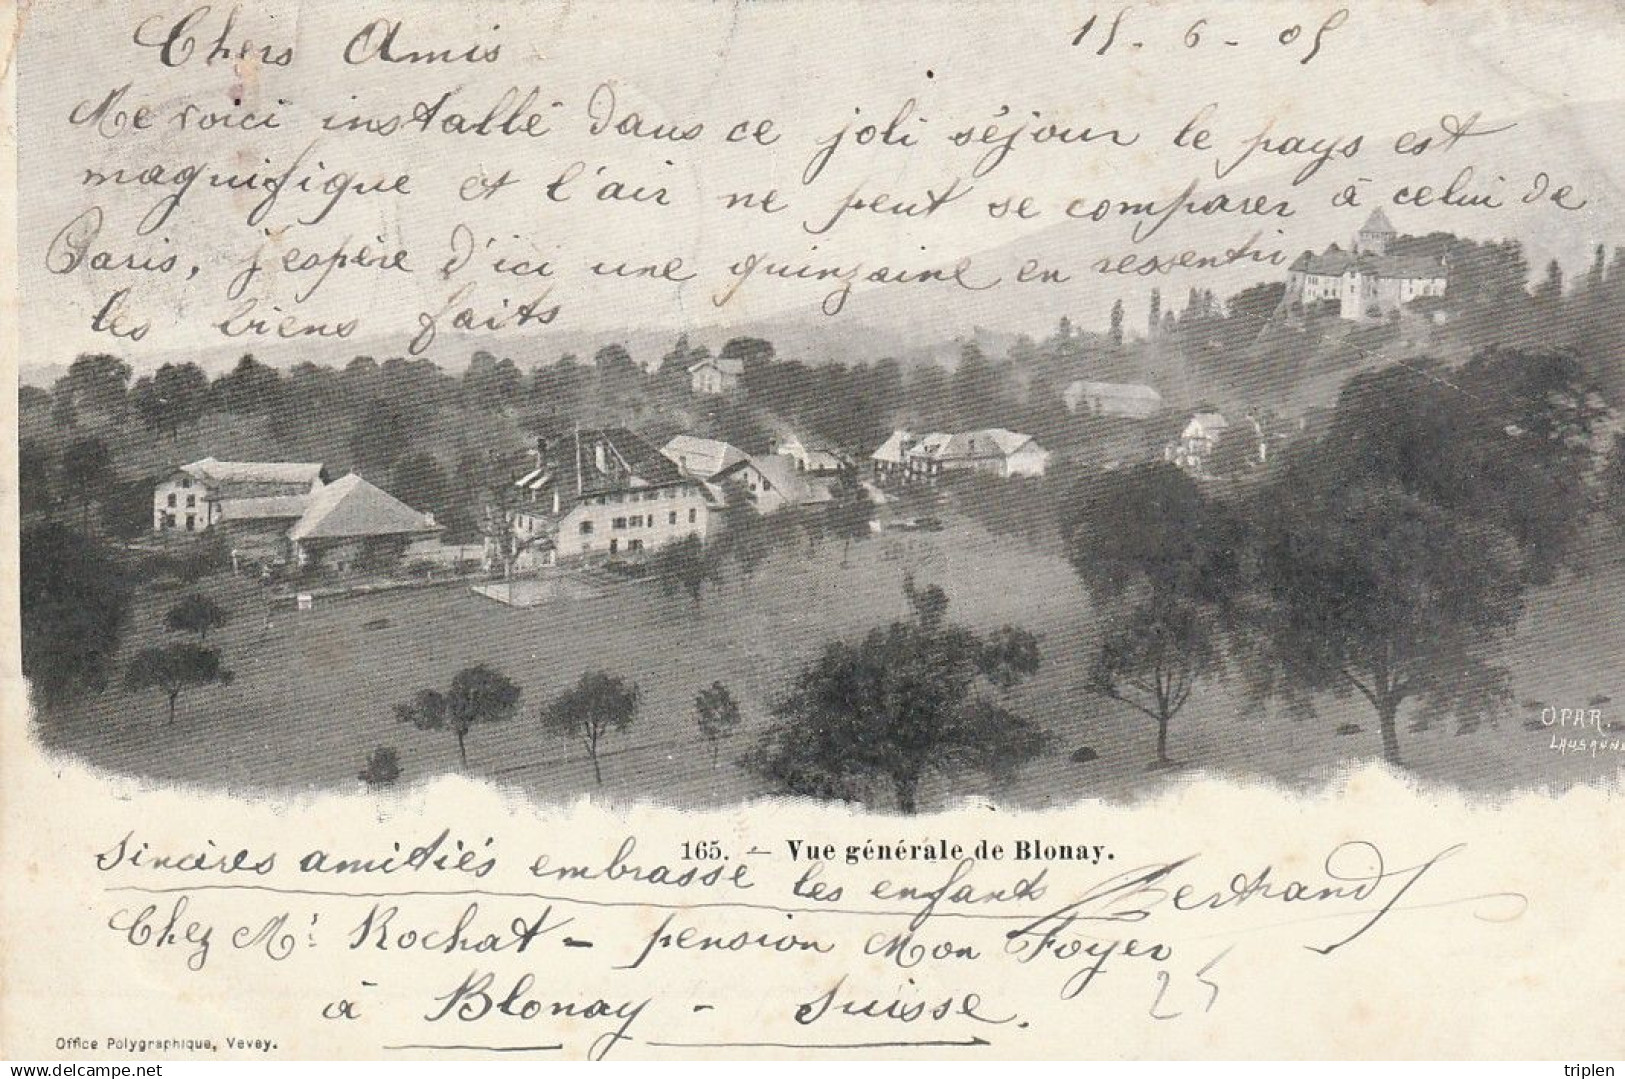 Chers Amis 15-6-05
Me voici installé dans ce joli séjour le pays est
magnifique et l'air ne peut se comparer à celui de
Paris, j'espère d'ici une quinzaine en ressentir
les biens faits
OPAR.
LAUSANNE
165. — Vue générale de Blonay.
Sincères amitiés embrasse les enfants Bertrand
Chez Mr Rochat - pension Mon Foyer
25
à Blonay - Suisse.
Office Polygraphique, Vevey.
delcampe.net
triplen